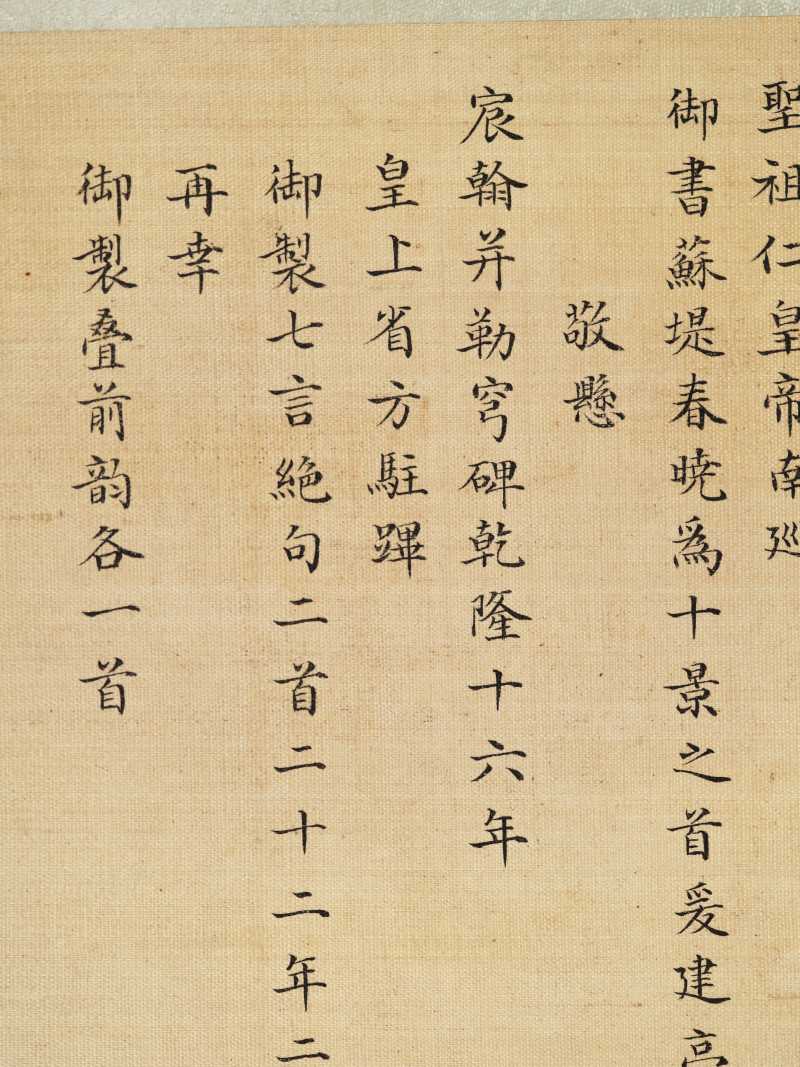 聖祖仁皇帝南廵
御書蘇堤春曉爲十景之首爰建亭
敬懸
宸翰并勒穹碑乾隆十六年
皇上省方駐蹕
御製七言絶句二首二十二年二
再幸
御製叠前韵各一首